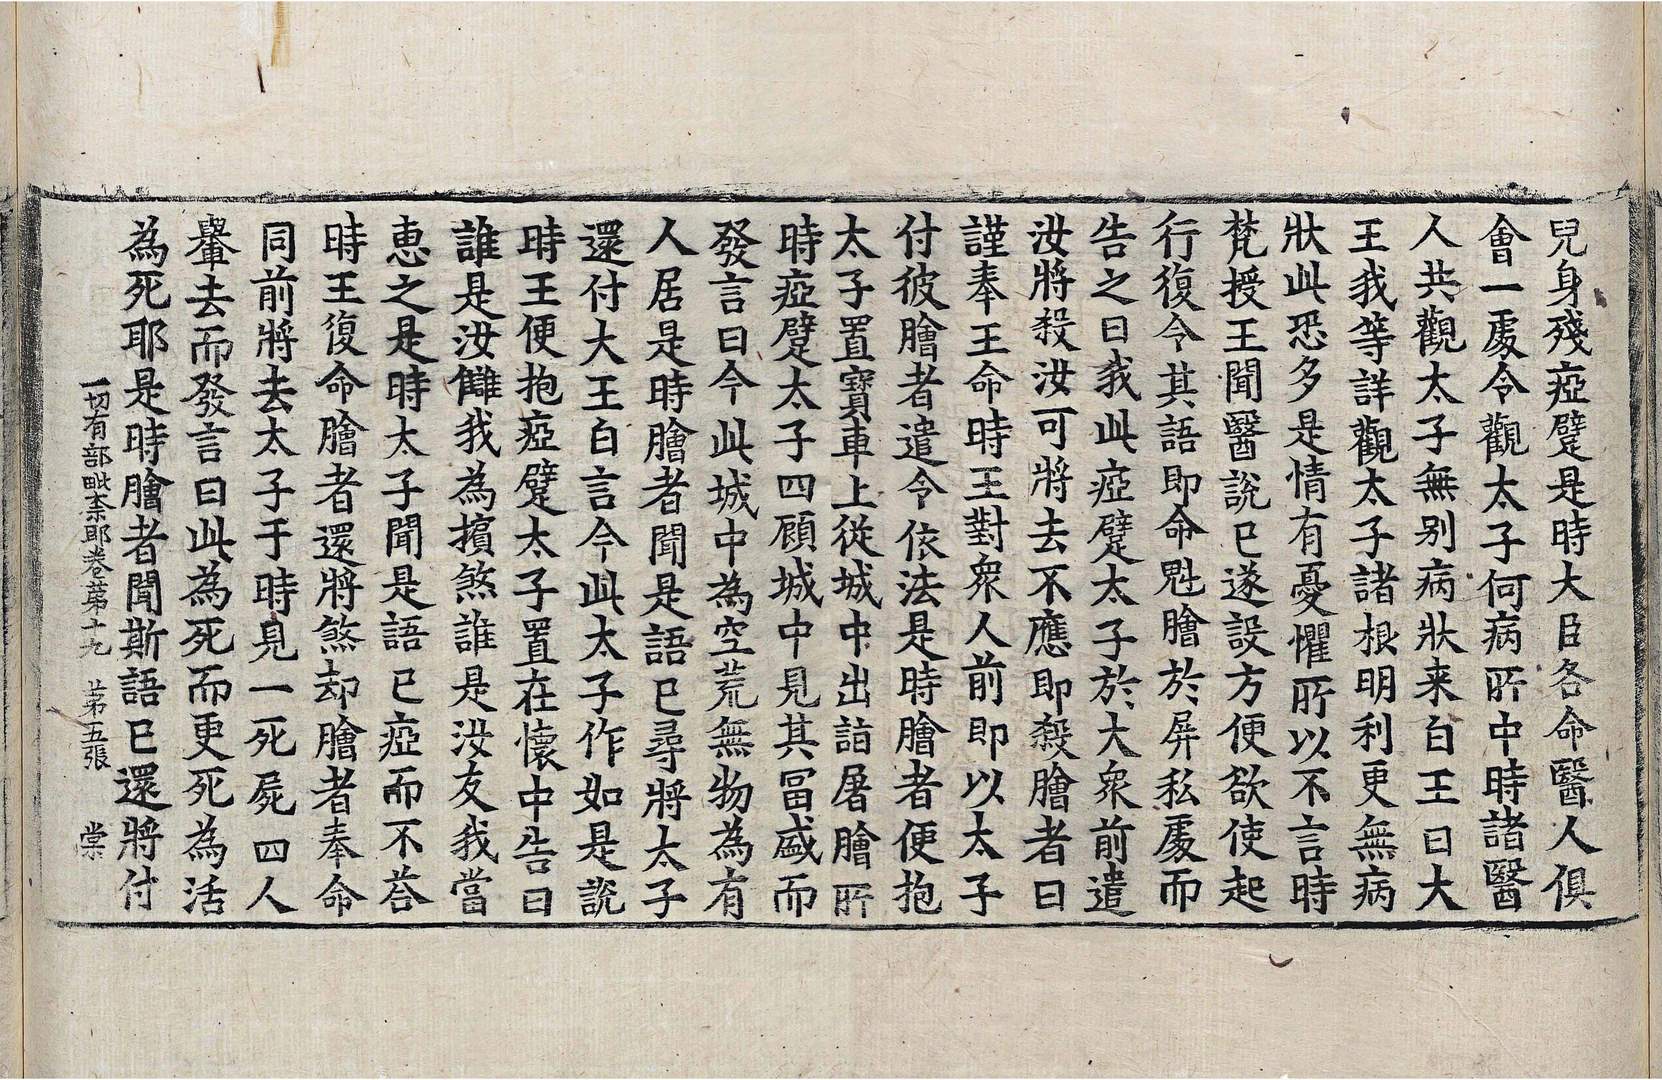 兒身殘瘂躄是時大臣各命醫人俱
會一處令觀太子何病所中時諸醫
人共觀太子無別病狀来白王曰大
王我等詳觀太子諸根明利更無病
狀此恐多是情有憂懼所以不言時
梵授王聞醫說已遂設方便欲使起
行復令其語即命魁膾於屏私處而
告之曰我此瘂躄太子於大衆前遣
汝將殺汝可將去不應即殺膾者曰
謹奉王命時王對衆人前即以太子
付彼膾者遣令依法是時膾者便抱
太子置寶車上從城中出詣屠膾所
時瘂躄太子四顧城中見其冨盛而
發言曰今此城中為空荒無物為有
人居是時膾者聞是語已尋將太子
還付大王白言今此太子作如是說
時王便抱瘂躄太子置在懷中告曰
誰是汝讎我為擯煞誰是汝友我當
恵之是時太子聞是語已瘂而不荅
時王復命膾者還將煞却膾者奉命
同前將去太子于時見一死屍四人
轝去而發言曰此為死而更死為活
為死耶是時膾者聞斯語已還將付
一切有部毗柰耶卷第十九 第五張 棠